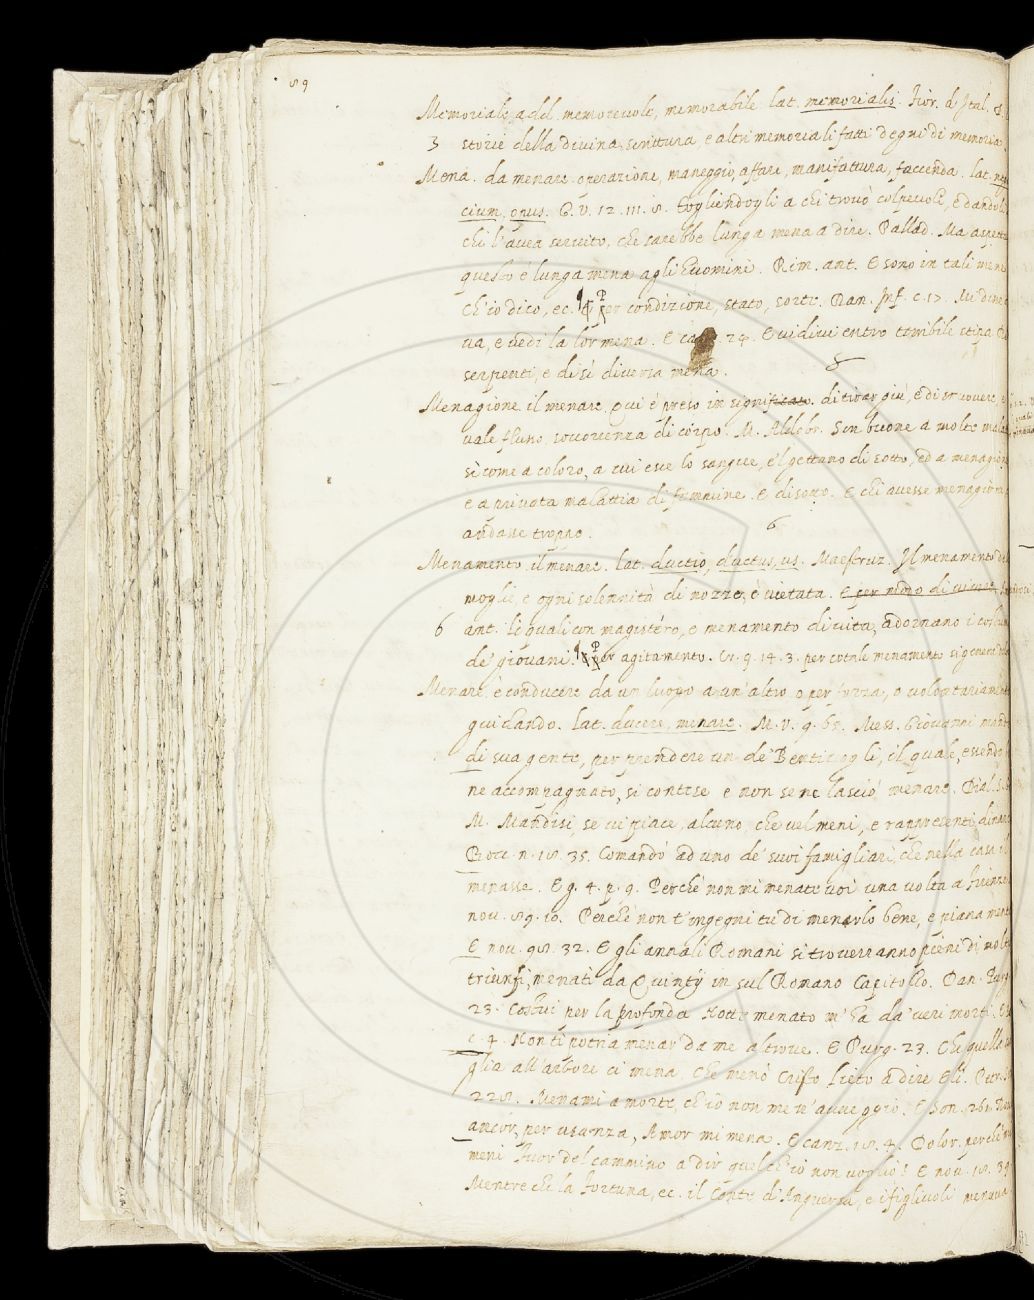 89
Memoriale add. memorevole, memorabile. lat. memorialis. Fior. d'Ital. &.
3 storie della divina scrittura, e altri memoriali fatti degni di memoria
Mena. da menare. operazione, maneggio, affare, manifattura, faccenda. lat. neg
cium, opus. G. V. 12. 111. 8. togliendogli a chi trovò colpevoli, e dandoli
chi l'avea servito, che sarebbe lunga mena a dire. Pallad. Ma aspetta
questo è lunga mena agli huomini. Rim. ant. E sono in tali mene
ch'io dico, ec. ¶ per condizione, stato, sorte. Dan. Inf. c. 17. Vi dine
va, e vedi la lor mena. E 24. E vidivi entro terribile stipa
serpenti, e di sì diversa mena.
8
Menagione. il menare. qui è preso in significato. di tirar giù, e di smuovere, e
vale flusso, soccorrenza di corpo. M. Aldobr. Son buone a molte malat
sì come a coloro, a cui esce lo sangue, e'l gettano di sotto, ed a menagion
e a privata malattia di femmine. e di sopra. E chi avesse menagione
andasse troppo.
6
Menamento. il menare. lat. ductio, ductus, us. Maestruz. Il menamento de
moglie, e ogni solennità di nozze, è vietata. E per modo di vivere.
6 ant. li quali con magistero, e menamento di vita, adornano i costum
de' giovani. ¶ per agitamento. Cr. 9. 14. 3. per cotale menamento si genera
Menare, è conducere da un luogo a un'altro o per forza, o volontariamente
guidando. lat. ducere, menare. M. V. 9. 65. Mess. Giovanni mandò
di sua gente, per prendere un de' Bentivogli, il quale, essendo
ne accompagnato, si contese e non se ne lasciò menare. Dial. S.
M. Mandisi, se vi piace, alcuno, che vel meni, e rappresenti dinan
Bocc. n. 18. 35. Comandò ad uno de' suoi famigliari, che nella casa il
menasse. E g. 4. p. 9. Perchè non mi menate voi una volta a Firenze
nov. 89. 10. Perchè non t'ingegni tu di menarlo bene, e piana mente
E nov. 98. 32. E gli annali Romani si troveranno pieni di molti
triunfi, menati da Quintij in sul Romano Capitolio. Dan. Purg.
23. Costui per la profonda Notte menato m'ha da' veri morti. E
c. 4. Non ti potrà menar da me altrove. E Purg. 23. Che quella vo
glia all'arbore ci mena, Che menò Cristo lieto a dire Elì. Petr. S.
228. Menami a morte, ch'io non me n'aveggio. E Son. 261. Non
ancor, per usanza, Amor mi mena. E canz. 18. 4. Dolor, perchè mi
meni Fuor del cammino a dir quel ch'io non voglio? E nov. 18. 39
Mentre che la fortuna, ec. il Conte d'Anguersa, e i figliuoli menava